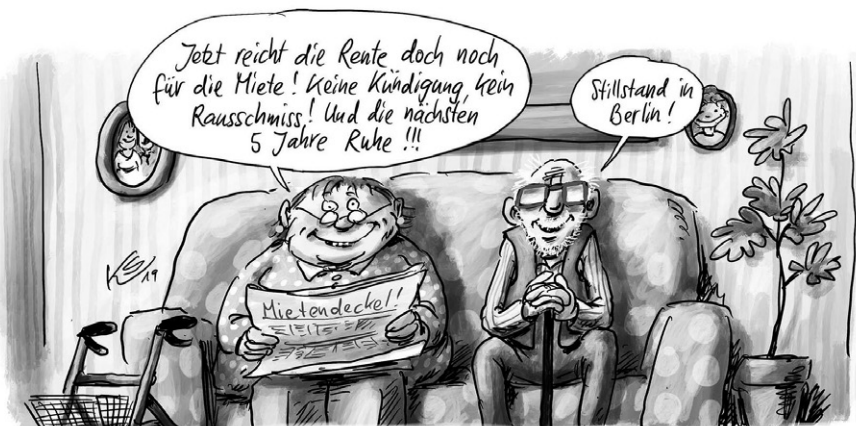 Jetzt reicht die Rente doch noch
für die Miete! Keine Kündigung, kein
Rausschmiss! Und die nächsten
5 Jahre Ruhe!!!
Stillstand in
Berlin!
Mietendeckel!
19